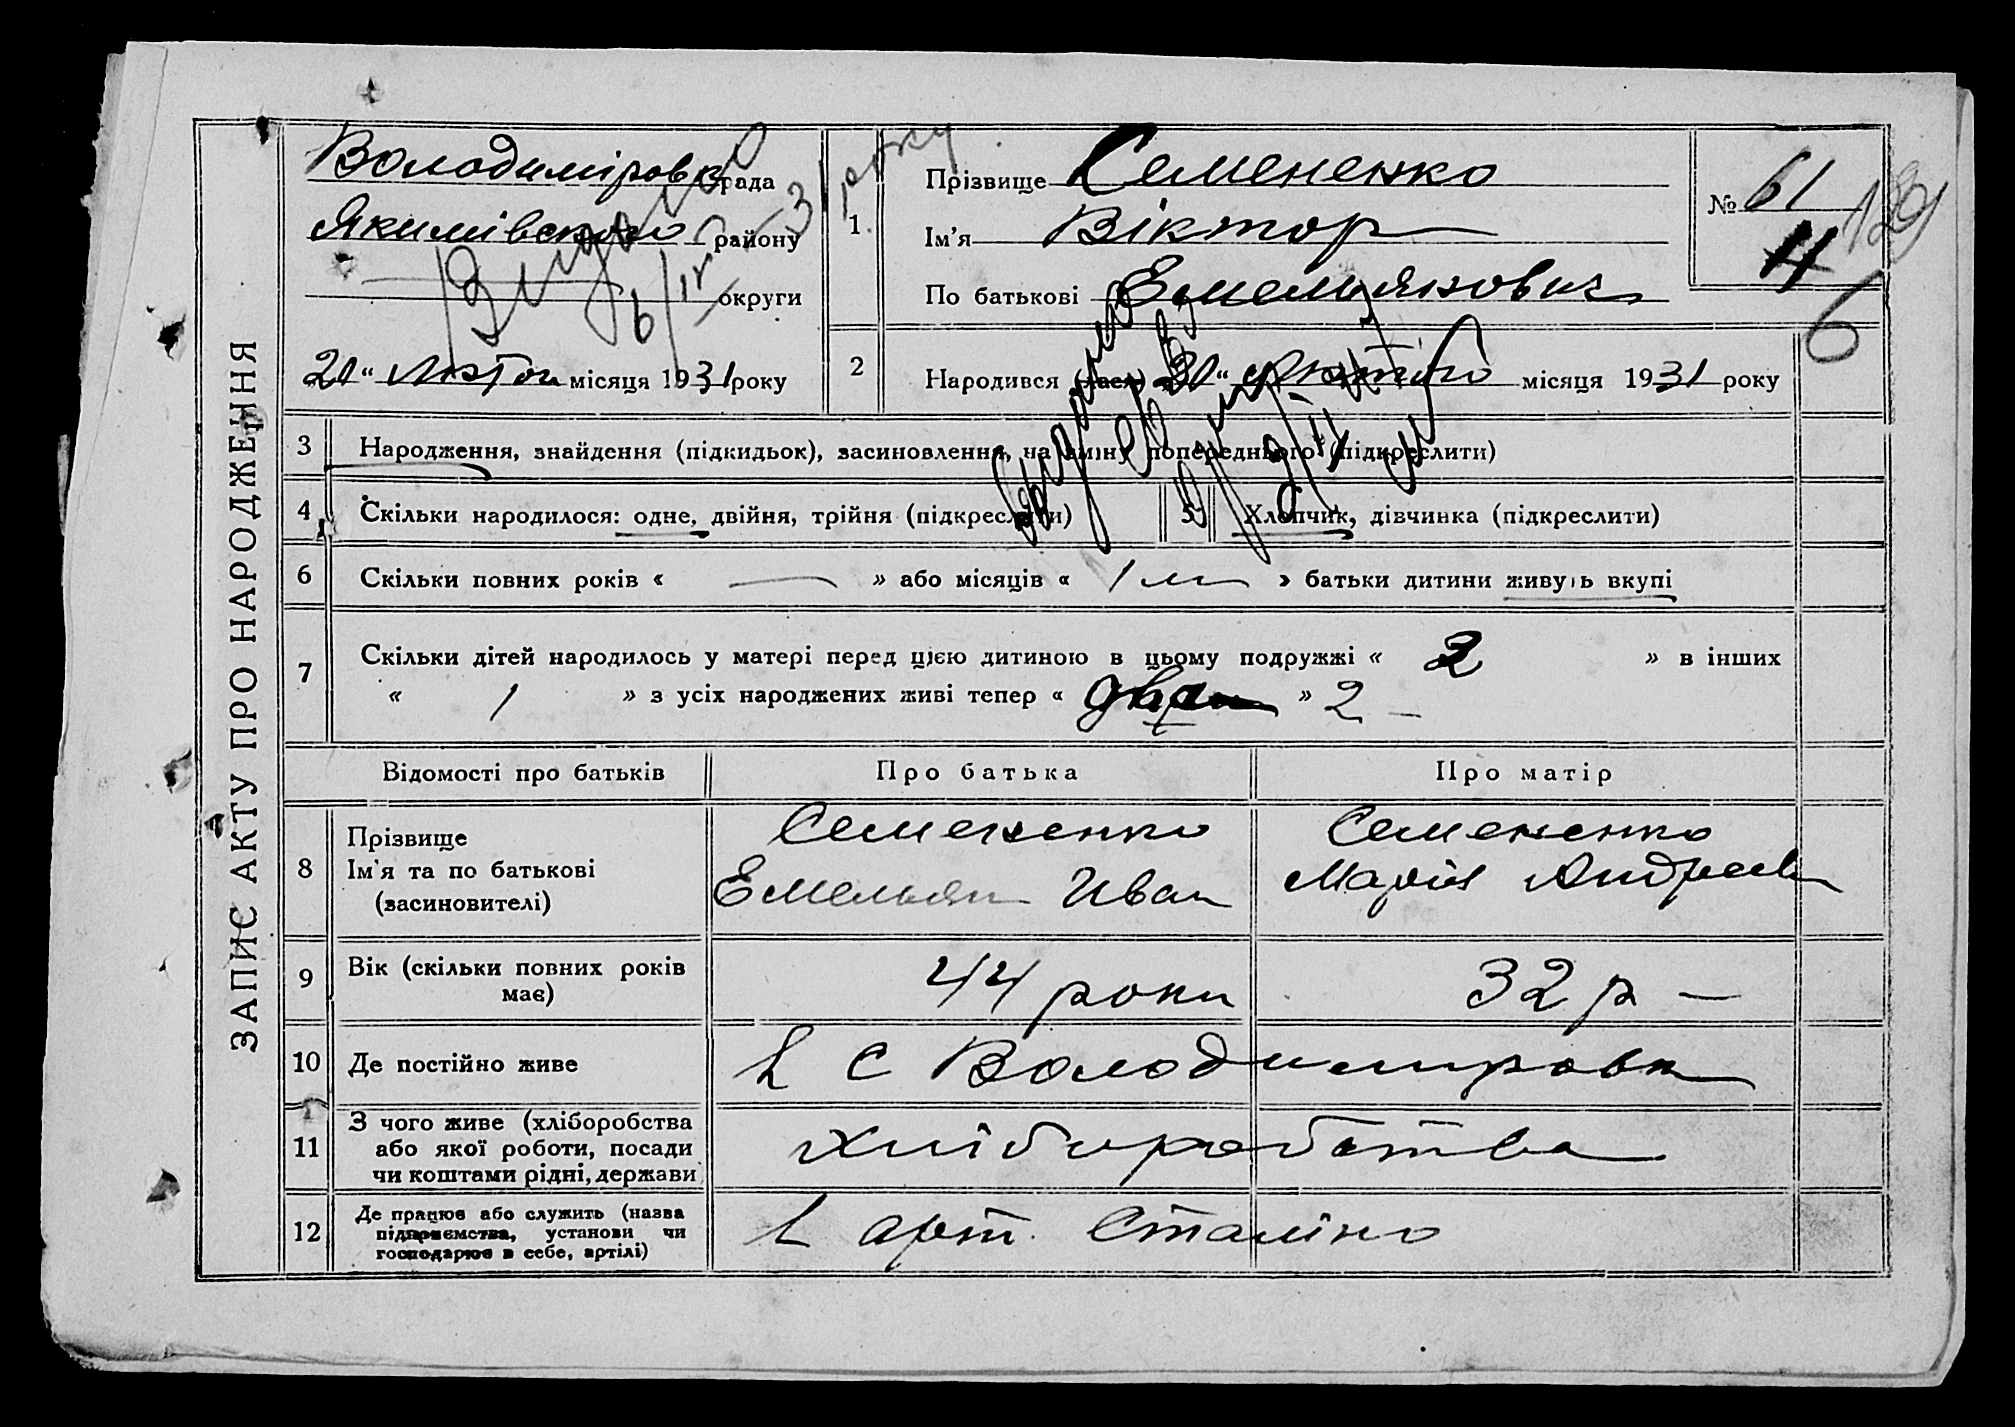 ЗАПИС АКТУ ПРО НАРОДЖЕННЯ
Володиміровка рада
Якимівського району
округи
20 " місяця 1931 року
Видано
1. Прізвище Семененко
Ім'я Віктор
По батькові Емельянович
№ 61
2 Народився " лютого місяця 1931 року
3 Народження, знайдення (підкидьок), засиновлення, на зміну попереднього (підкреслити)
4 Скільки народилося: одне, двійня, трійня (підкреслити) 5 Хлопчик, дівчинка (підкреслити)
6 Скільки повних років « — » або місяців « 1 м » батьки дитини живуть вкупі
7 Скільки дітей народилось у матері перед цією дитиною в цьому подружжі « 2 » в інших
« 1 » з усіх народжених живі тепер « два » 2 —
Відомості про батьків Про батька Про матір
8 Прізвище Семененко Семененко
Ім'я та по батькові Емельян Иван Марія Андреевн
(засиновителі)
9 Вік (скільки повних років має) 44 роки 32 р —
10 Де постійно живе С Володимировка
11 З чого живе (хліборобства
або якої роботи, посади
чи коштами рідні, держави
хліборобства
12 Де працює або служить (назва
підприємства, установи чи
господарює в себе, артілі)
арт. Сталіно